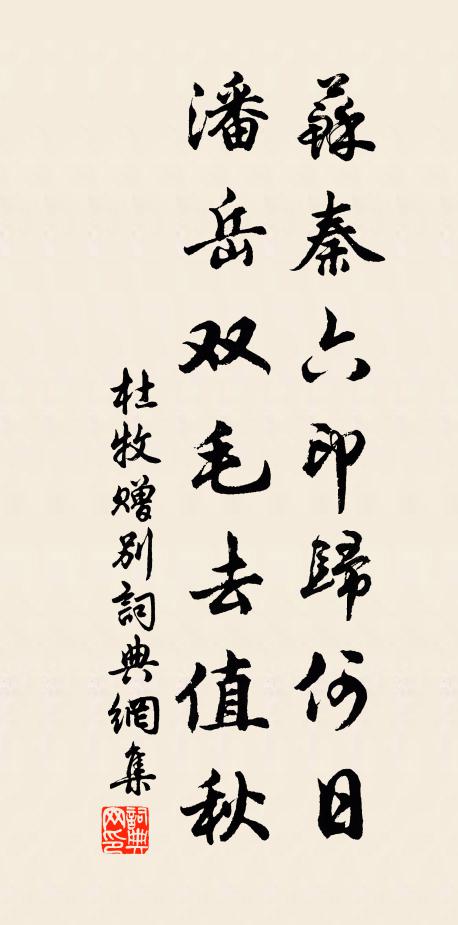 蘇秦六印歸何日
潘岳双毛去值秋
杜牧赠别詞典網集
詞典网印